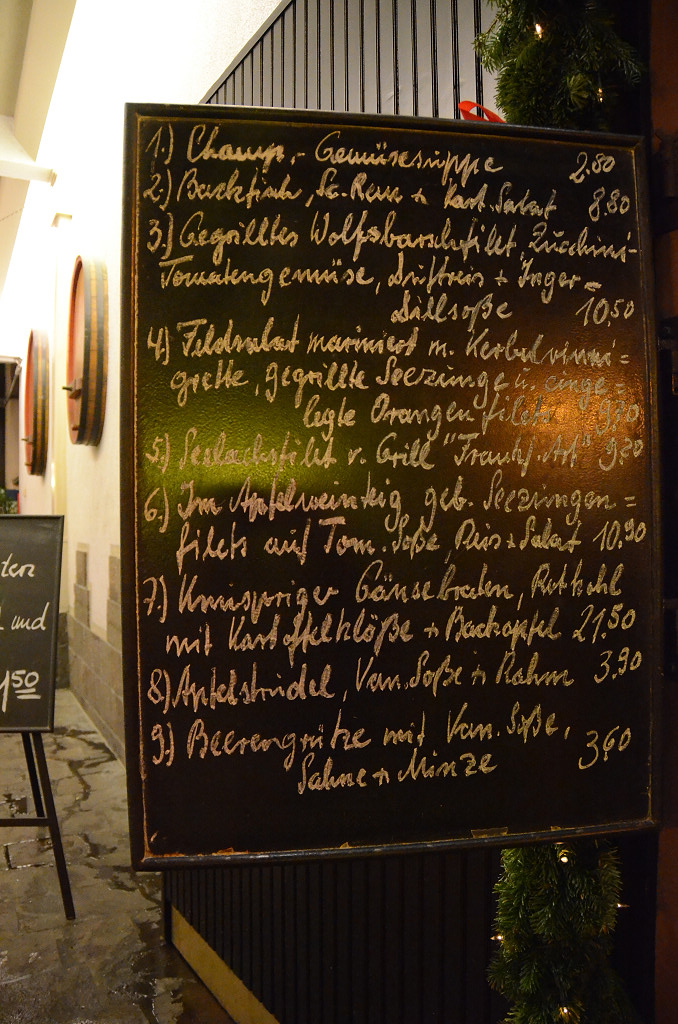 1.) Champ.- Gemüsesuppe 2.80
2.) Backfisch, Sc. Rem + Kart. Salat 8.80
3.) Gegrilltes Wolfsbarschfilet, Zucchini-
Tomatengemüse, Duftreis + Inger=
Dillsoße 10,50
4.) Feldsalat mariniert m. Kerbelvinni=
grette, gegrillte Seezunge u. einge=
legte Orangenfilets 9,70
5.) Seelachsfilet v. Grill "Frankf. Art" 9.80
6.) Im Apfelweinteig geb. Seezungen=
filets auf Tom. Soße, Reis + Salat 10.90
7.) Knuspriger Gänsebraten, Rotkohl
mit Kartoffelklöße + Backapfel 21.50
8.) Apfelstrudel, Van. Soße + Rahm 3.90
9.) Beerengrütze mit Van. Soße,
Sahne + Minze 3,60
und
50